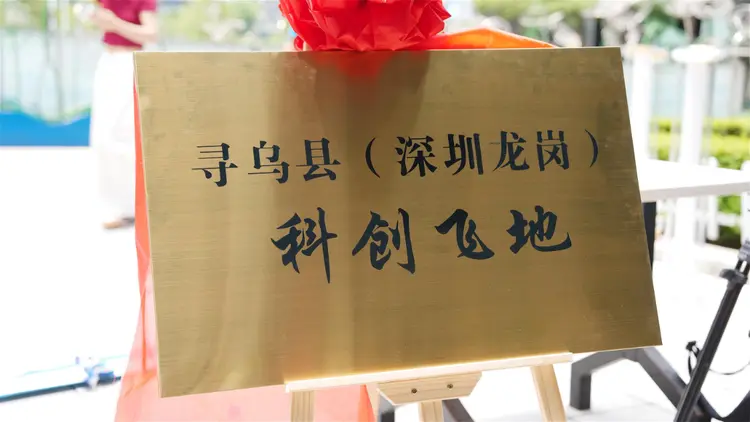 寻乌县（深圳龙岗）
科创飞地